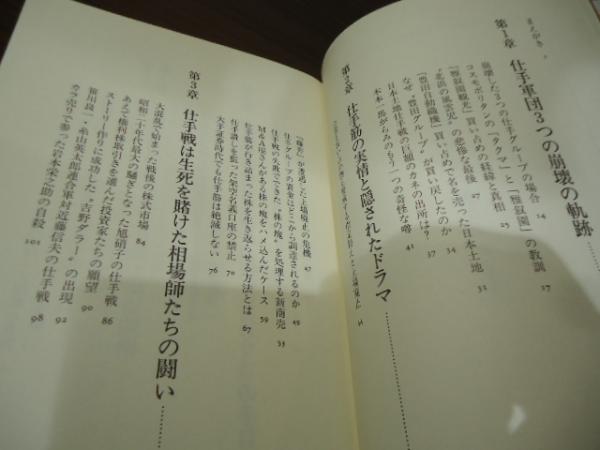 まえがき
第1章 仕手軍団3つの崩壊の軌跡……
崩壊した3つの仕手グループの場合 14
コスモポリタンの「タクマ」と「雅叙園」の教訓 17
「雅叙園観光」買い占めの経緯と真相 25
"北浜の風雲児"の悲惨な最後 27
「豊田自動織機」買い占めで名を売った日本土地 31
なぜ"豊田グループ"が買い戻したのか
日本土地仕手戦の巨額のカネの出所は?
木本一郎がらみのもう一つの奇怪な噂 41
第2章 仕手筋の実情と隠されたドラマ
上場廃止の危機 47
仕手グループの資金はどこから調達されるのか 49
仕手戦の失敗でできた"株の塊"を処理する新商売 53
M&A屋さんがある株の塊を"ハメ込んだケース 59
仕手株が行き詰まった株を生き返らせる方法とは 67
仕手潰しを狙った架空名義口座の禁止 70
大手証券時代でも仕手筋は絶滅しない 76
第3章 仕手戦は生死を賭けた相場師たちの闘い……
大混乱で始まった戦後の株式市場 84
昭和二十年代最大の騒ぎとなった旭硝子の仕手戦 86
あえて権利株取引きを選んだ投資家たちの願望 90
ストーリー作りに成功した"吉野ダラー"の出現 92
笹川良一・糸山英太郎連合軍対近藤信夫の仕手戦 98
カラ売りで参った岩本栄之助の自殺 101